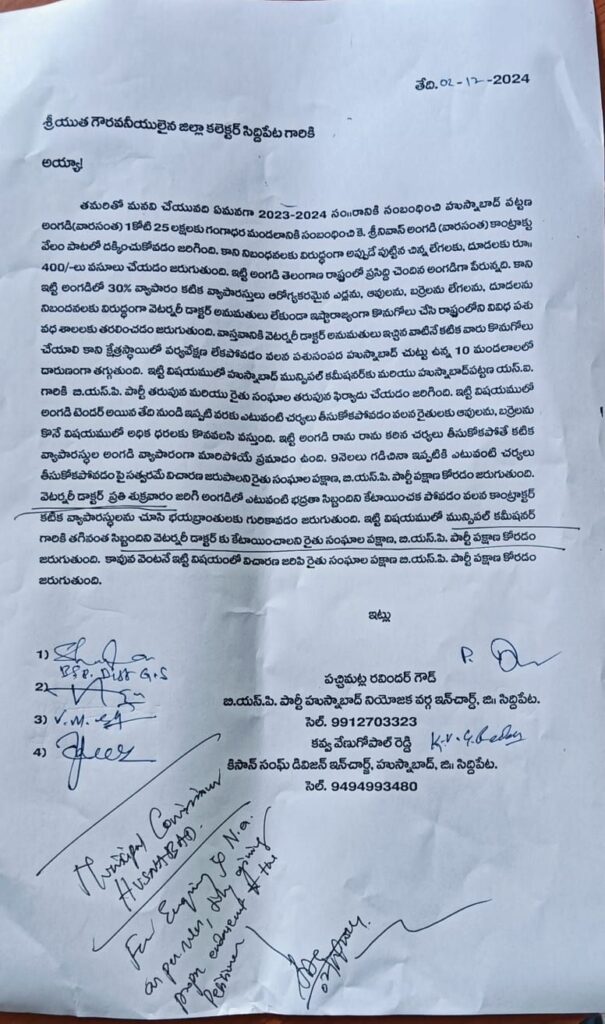 తేది.02-12-2024
శ్రీయుత గౌరవనీయులైన జిల్లా కలెక్టర్ సిద్దిపేట గారికి
అయ్యా!
తమరితో మనవి చేయునది ఏమనగా 2023-2024 సం॥రానికి సంబంధించి హుస్నాబాద్ పట్టణ
అంగడి(వారసంత) 1కోటి 25 లక్షలకు గంగాధర మండలానికి సంబంధించి కె. శ్రీనివాస్ అంగడి (వారసంత) కాంట్రాక్టు
వేలం పాటలో దక్కించుకోవడం జరిగింది. కాని నిబంధనలకు విరుద్ధంగా అప్పుడే పుట్టిన చిన్న లేగలకు, దూడలకు రూ॥
400/-లు వసూలు చేయడం జరుగుతుంది. ఇట్టి అంగడి తెలంగాణ రాష్ట్రంలో ప్రసిద్ది చెందిన అంగడిగా పేరున్నది. కాని
ఇట్టి అంగడిలో 30% వ్యాపారం కటిక వ్యాపారస్తులు ఆరోగ్యకరమైన ఎడ్లను, ఆవులను, బర్రెలను లేగలను, దూడలను
నిబదనలకు విరుద్ధంగా వెటర్నరీ డాక్టర్ అనుమతులు లేకుండా ఇష్టారాజ్యంగా కొనుగోలు చేసి రాష్ట్రంలోని వివిధ పశు
వధ శాలలకు తరలించడం జరుగుతుంది. వాస్తవానికి వెటర్నరీ డాక్టర్ అనుమతులు ఇచ్చిన వాటినే కటిక వారు కొనుగోలు
చేయాలి కాని క్షేత్రస్థాయిలో పర్యవేక్షణ లేకపోవడం వలన పశుసంపద హుస్నాబాద్ చుట్టు ఉన్న 10 మండలాలలో
దారుణంగా తగ్గుతుంది. ఇట్టి విషయములో హుస్నాబాద్ మున్సిపల్ కమీషనర్‌కు మరియు హుస్నాబాద్‌పట్టణ యస్.ఐ.
గారికి బి.యస్.పి. పార్టీ తరుపున మరియు రైతు సంఘాల తరుపున ఫిర్యాదు చేయడం జరిగింది. ఇట్టి విషయములో
అంగడి టెండర్ అయిన తేది నుండి ఇప్పటి వరకు ఎటువంటి చర్యలు తీసుకోకపోవడం వలన రైతులకు ఆవులను, బర్రెలను
కొనే విషయములో అధిక ధరలకు కొనవలసి వస్తుంది. ఇట్టి అంగడి రాను రాను కఠిన చర్యలు తీసుకోకపోతే కటిక
వ్యాపారస్థుల అంగడి వ్యాపారంగా మారిపోయే ప్రమాదం ఉంది. 9నెలలు గడిచినా ఇప్పటికి ఎటువంటి చర్యలు
తీసుకోకపోవడం పై సత్వరమే విచారణ జరుపాలని రైతు సంఘాల పక్షాణ, బి.యస్.పి. పార్టీ పక్షాణ కోరడం జరుగుతుంది.
వెటర్నరీ డాక్టర్ ప్రతి శుక్రవారం జరిగి అంగడిలో ఎటువంటి భద్రతా సిబ్బందిని కేటాయించక పోవడం వలన కాంట్రాక్టర్
కటిక వ్యాపారస్తులను చూసి భయబ్రాంతులకు గురికావడం జరుగుతుంది. ఇట్టి విషయములో మున్సిపల్ కమీషనర్
గారికి తగినంత సిబ్బందిని వెటర్నరీ డాక్టర్ కు కేటాయించాలని రైతు సంఘాల పక్షాణ, బి.యస్.పి. పార్టీ పక్షాణ కోరడం
జరుగుతుంది. కావున వెంటనే ఇట్టి విషయంలో విచారణ జరిపి రైతు సంఘాల పక్షాణ బి.యస్.పి. పార్టీ కోరడం
జరుగుతుంది.
ఇట్లు
1)
BSP. Dist G.S
2)
3) V.M.
4)
పచ్చిమట్ల రవిందర్ గౌడ్
బి.యస్.పి. పార్టీ హుస్నాబాద్ నియోజక వర్గ ఇన్‌చార్జ్, జి॥ సిద్దిపేట.
సెల్. 9912703323
కవ్వ వేణుగోపాల్ రెడ్డి K.V.G.Reddy
కిసాన్ సంఘ్ డివిజన్ ఇన్‌చార్జ్, హుస్నాబాద్, జి॥ సిద్దిపేట.
సెల్. 9494993480
Municipal Commissioner
HUSNABAD.
For Enquiry & N.a.
as per rules, duly giving
proper endorsement to the
Petitioner